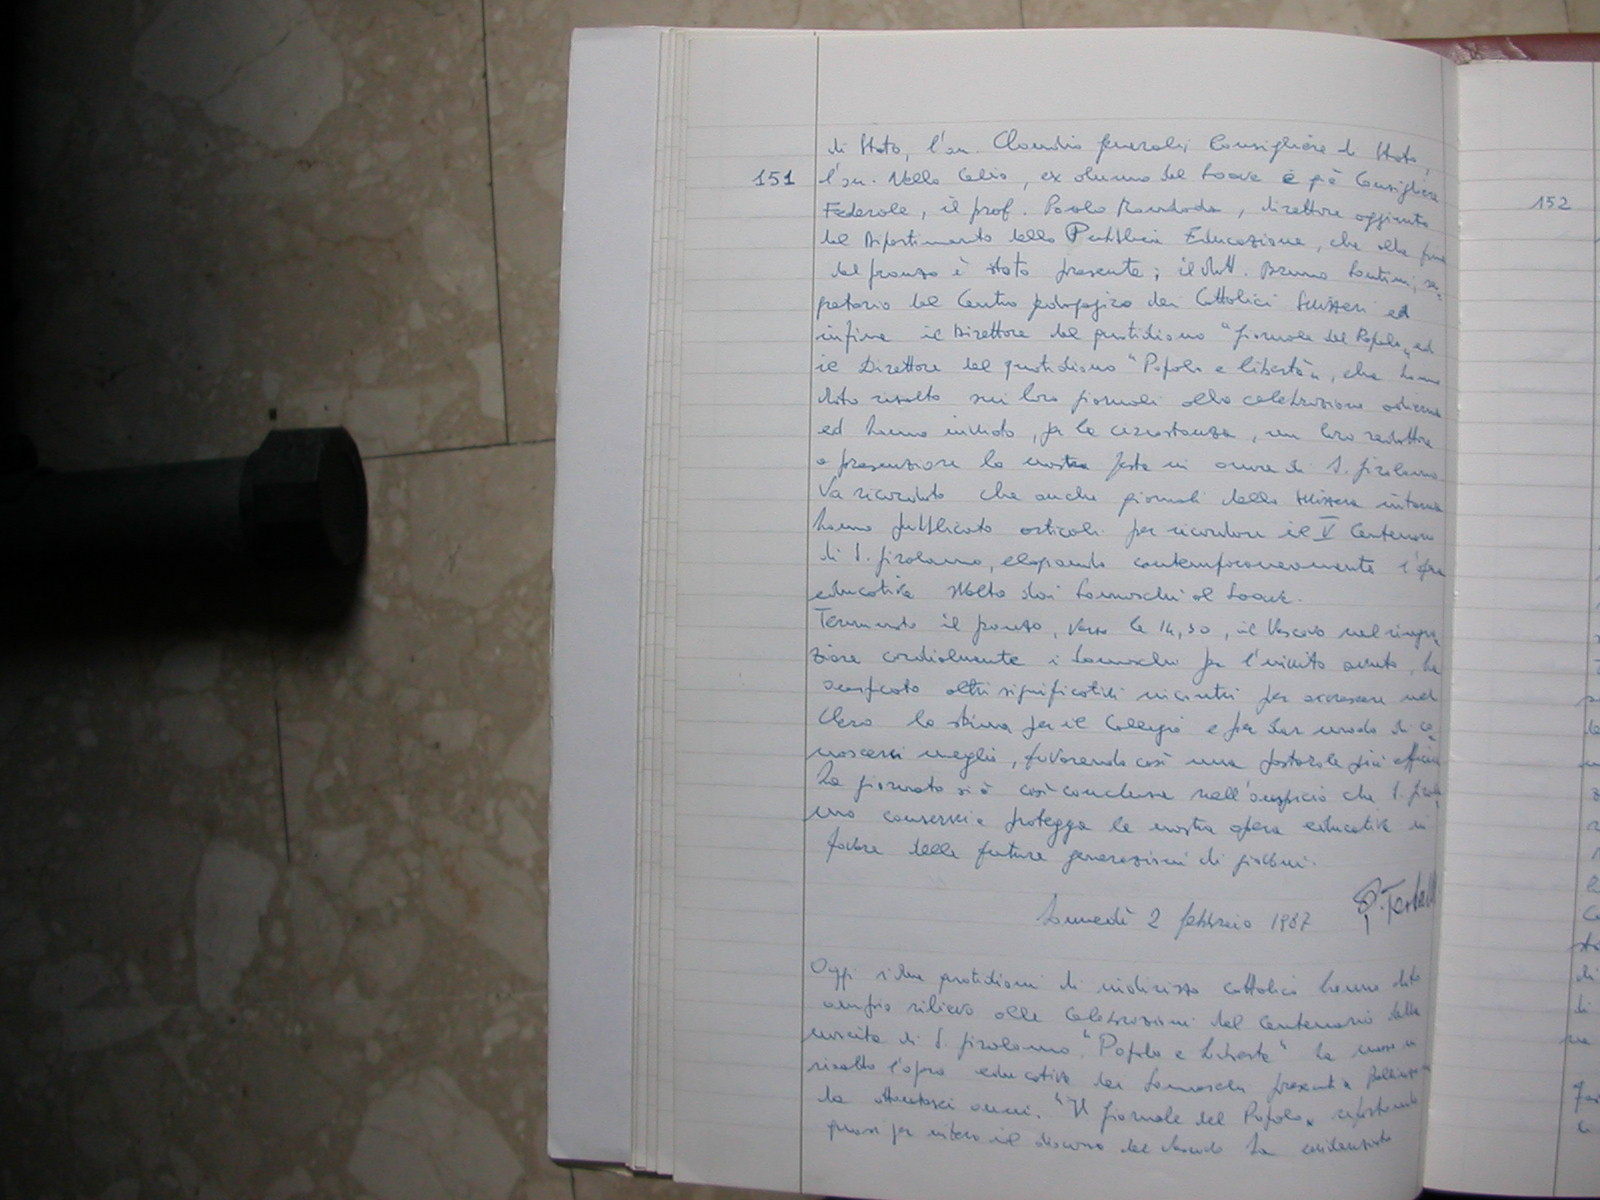 di Stato, l'on. Claudio Generali, Consigliere di Stato,
151
l'on. Nello Celio, ex alunno del Soave e già Consigliere
Federale, il prof. Paolo, direttore aggiunto
del Dipartimento della Pubblica Educazione, che alla fine
del pranzo è stato presente; il dott. Bruno Santini, se=
gretario del Centro pedagogico dei Cattolici Svizzeri ed
infine il Direttore del quotidiano "Giornale del Popolo" ed
il Direttore del quotidiano "Popolo e libertà", che hanno
dato risalto sui loro giornali alla celebrazione odierna
ed hanno inviato, per la circostanza, un loro redattore
a presenziare la nostra festa in onore di S. Girolamo.
Va ricordato che anche giornali della Svizzera interna
hanno pubblicato articoli per ricordare il V Centenario
di S. Girolamo, elogiando contemporaneamente l'opera
educativa svolta dai Somaschi al Soave.
Terminato il pranzo, verso le 14,30, il Vescovo nel ringra=
ziare cordialmente i Somaschi per l'invito avuto, ha
auspicato altri significativi incontri per accrescere nel
Clero la stima per il Collegio e per dar modo di co=
noscersi meglio, favorendo così una pastorale più efficace
La giornata si è così conclusa nell'auspicio che S. Girola=
mo conservi e protegga la nostra opera educativa in
favore delle future generazioni di giovani.
Lunedì 2 febbraio 1987
Oggi i due quotidiani di indirizzo cattolico hanno dato
ampio rilievo alle Celebrazioni del Centenario della
nascita di S. Girolamo. "Popolo e Libertà" ha messo in
risalto l'opera educativa dei Somaschi presenti a Bellinzona
da ottantasei anni. "Il Giornale del Popolo" riportando
quasi per intero il discorso del Vescovo ha evidenziato
152